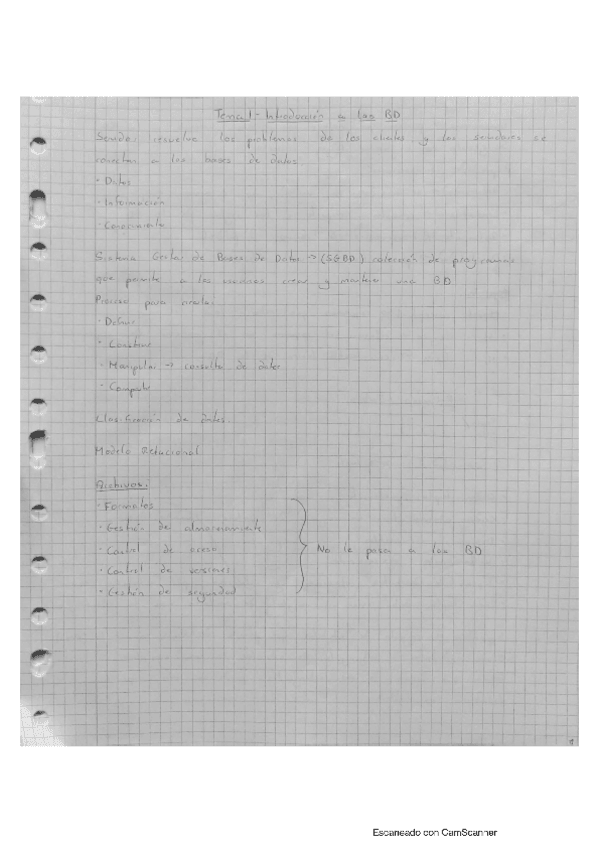 Tema 1 - Introducción a las BD
Servidor resuelve los problemas de los clientes y los servidores se
conectan a las bases de datos
· Datos
· Información
· Conocimiento
Sistema Gestor de Bases de Datos → (SGBD) colección de programas
que permite a los usuarios crear y mantener una BD
Proceso para crearla:
· Definir
· Construir
· Manipular → consulta de datos
· Compartir
Clasificación de datos.
Modelo Relacional
Archivos:
· Formatos
· Gestión de almacenamiento
· Control de acceso
· Control de versiones
· Gestión de seguridad
No le pasa a las BD
Escaneado con CamScanner